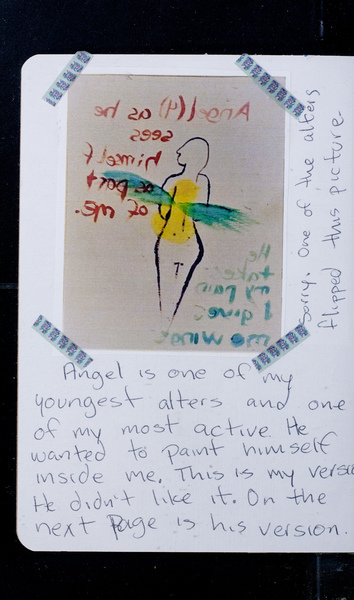 Angel (4) as he
sees
himself
as part
of me.
He
takes
my pain
gives
me wings
Sorry. One of the alters
flipped this picture.
Angel is one of my
youngest alters and one
of my most active. He
wanted to paint himself
inside me. This is my versio
He didn't like it. On the
next page is his version.